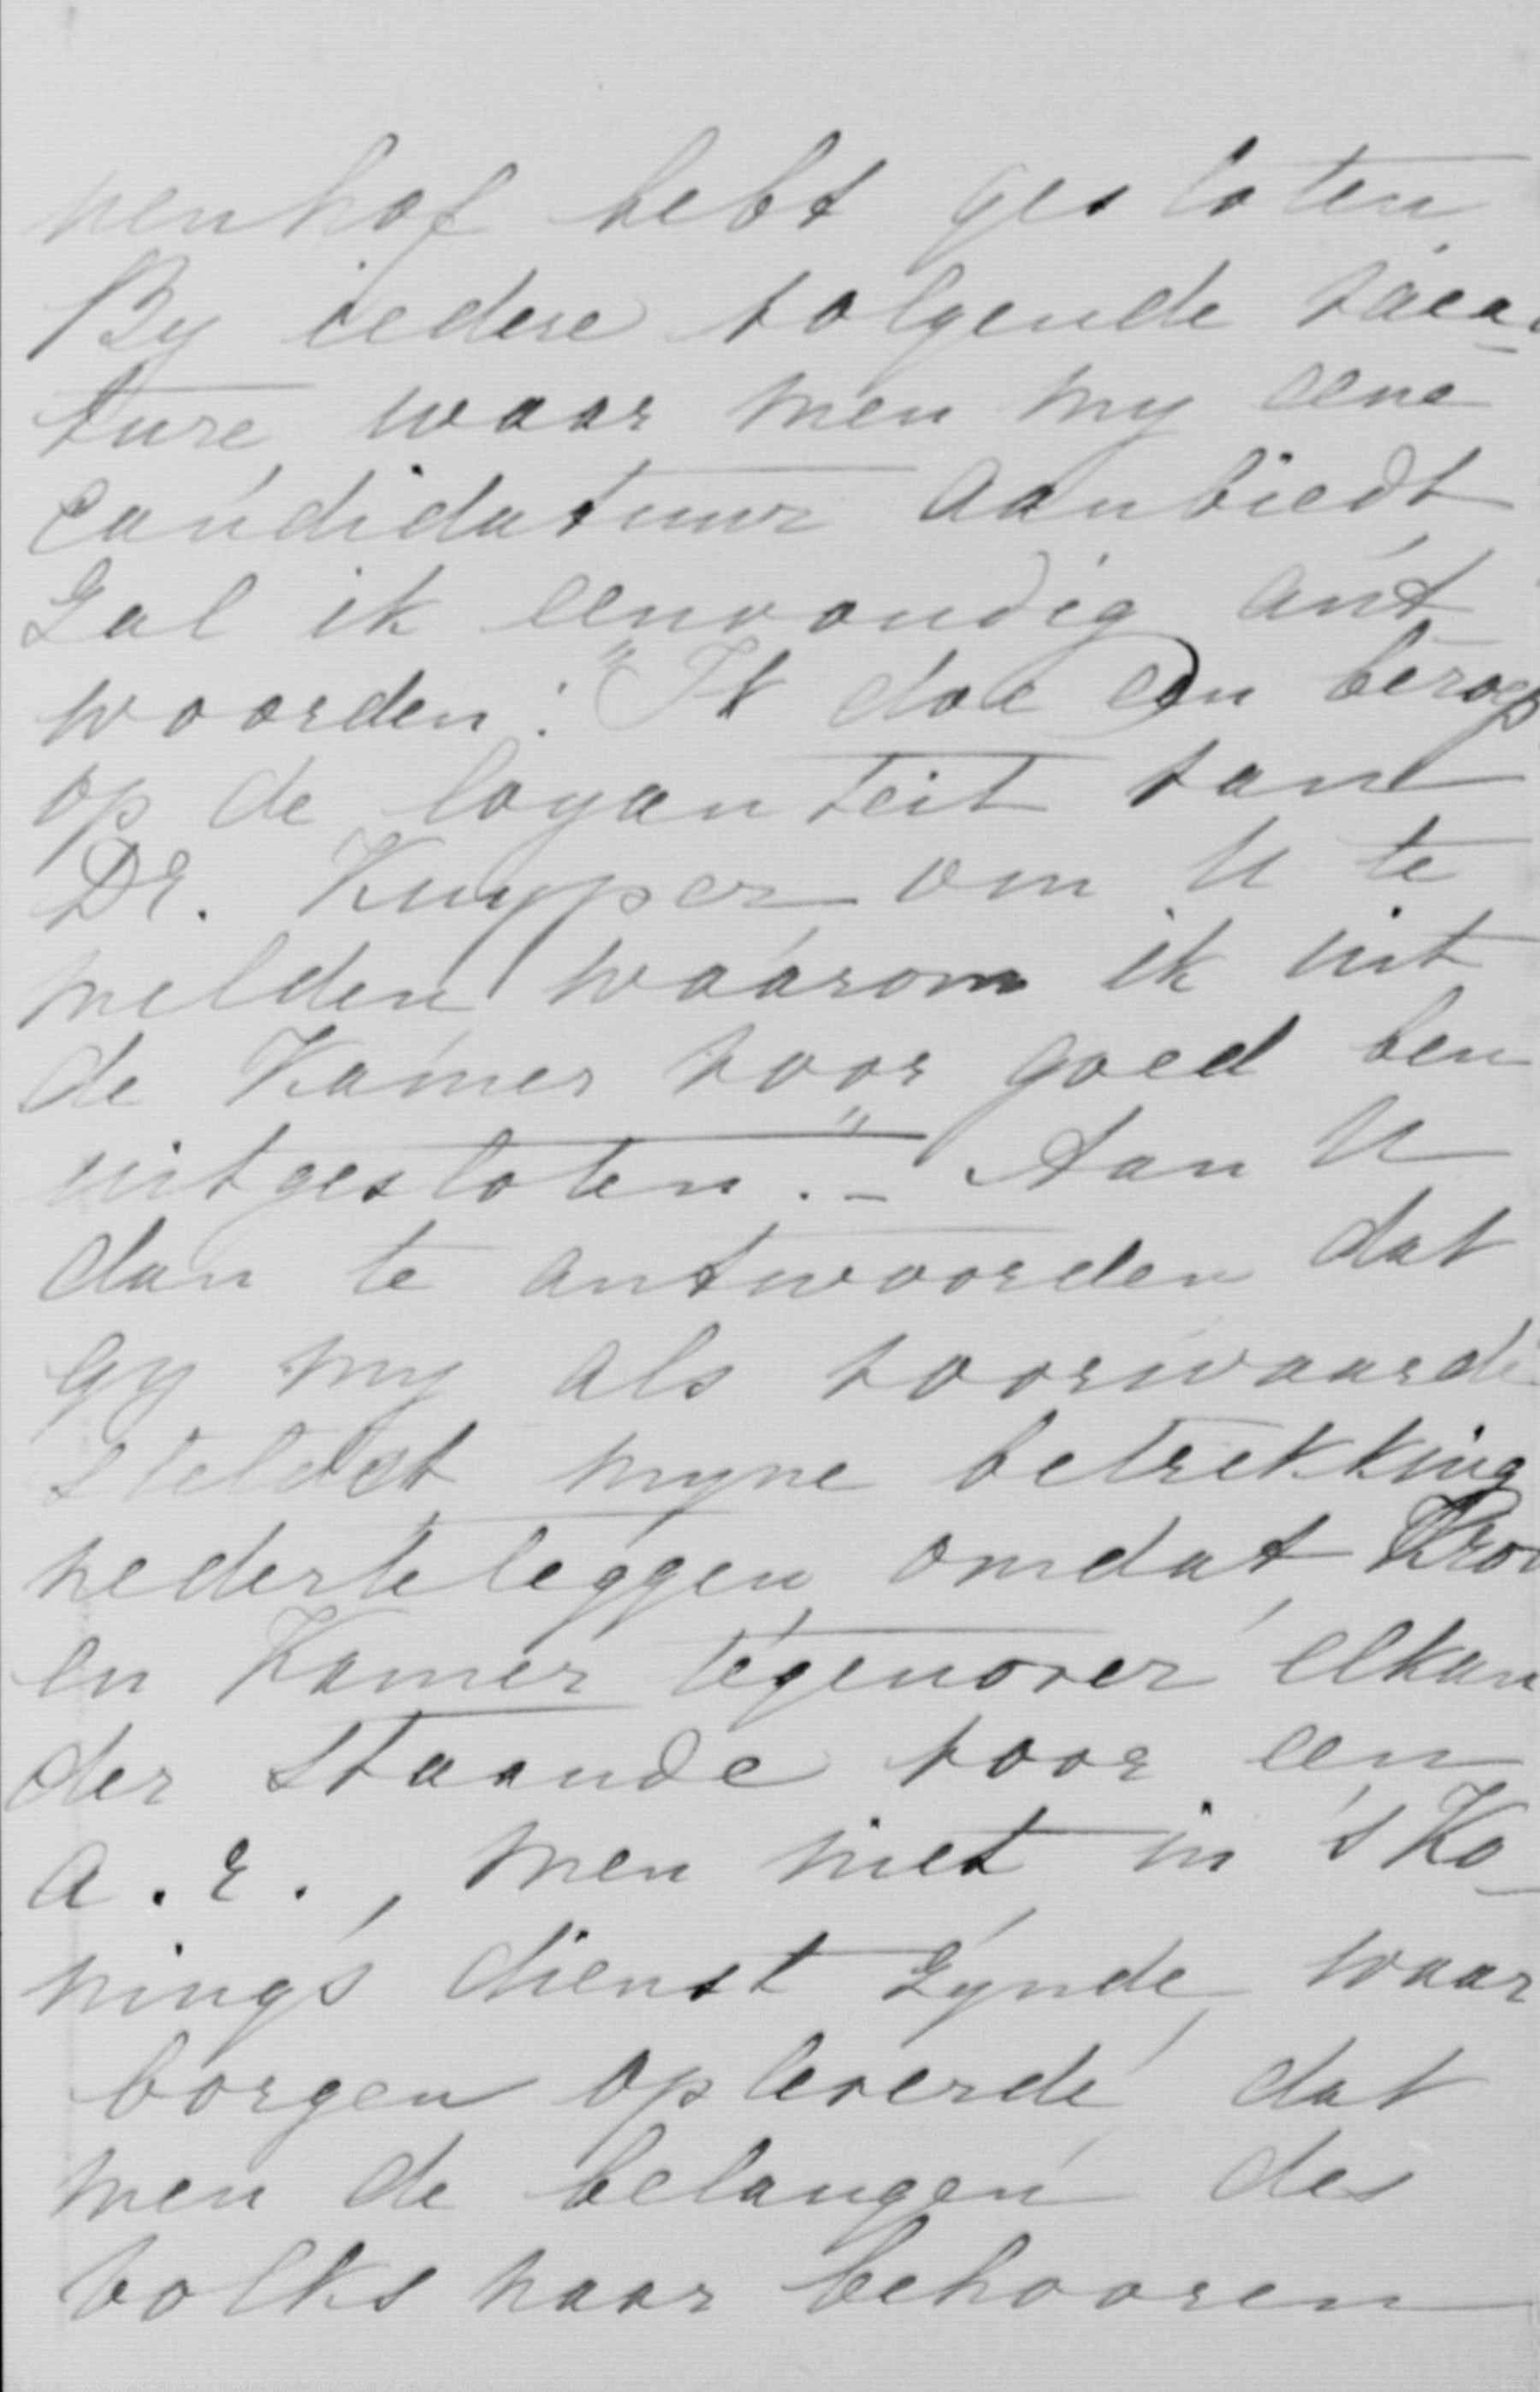 nenhof hebt gesloten
By iedere volgende vaca-
ture, waar men my eene
candidatuur aanbiedt
zal ik eenvoudig ant
woorden: "Ik doe een beroep
op de loyauteit van
Dr. Kuyper om U te
melden waarom ik uit
de Kamer voor goed ben
uitgesloten." - Aan U
dan te antwoorden dat
gy my als voorwaarde
steldet myne betrekking
nederteleggen, omdat Kroon
en Kamer tegenover elkan
der staande voor een
A.R., men niet in 's Ko-
nings dienst zynde, waar
borgen opleverde dat
men de belangen des
volks naar behooren